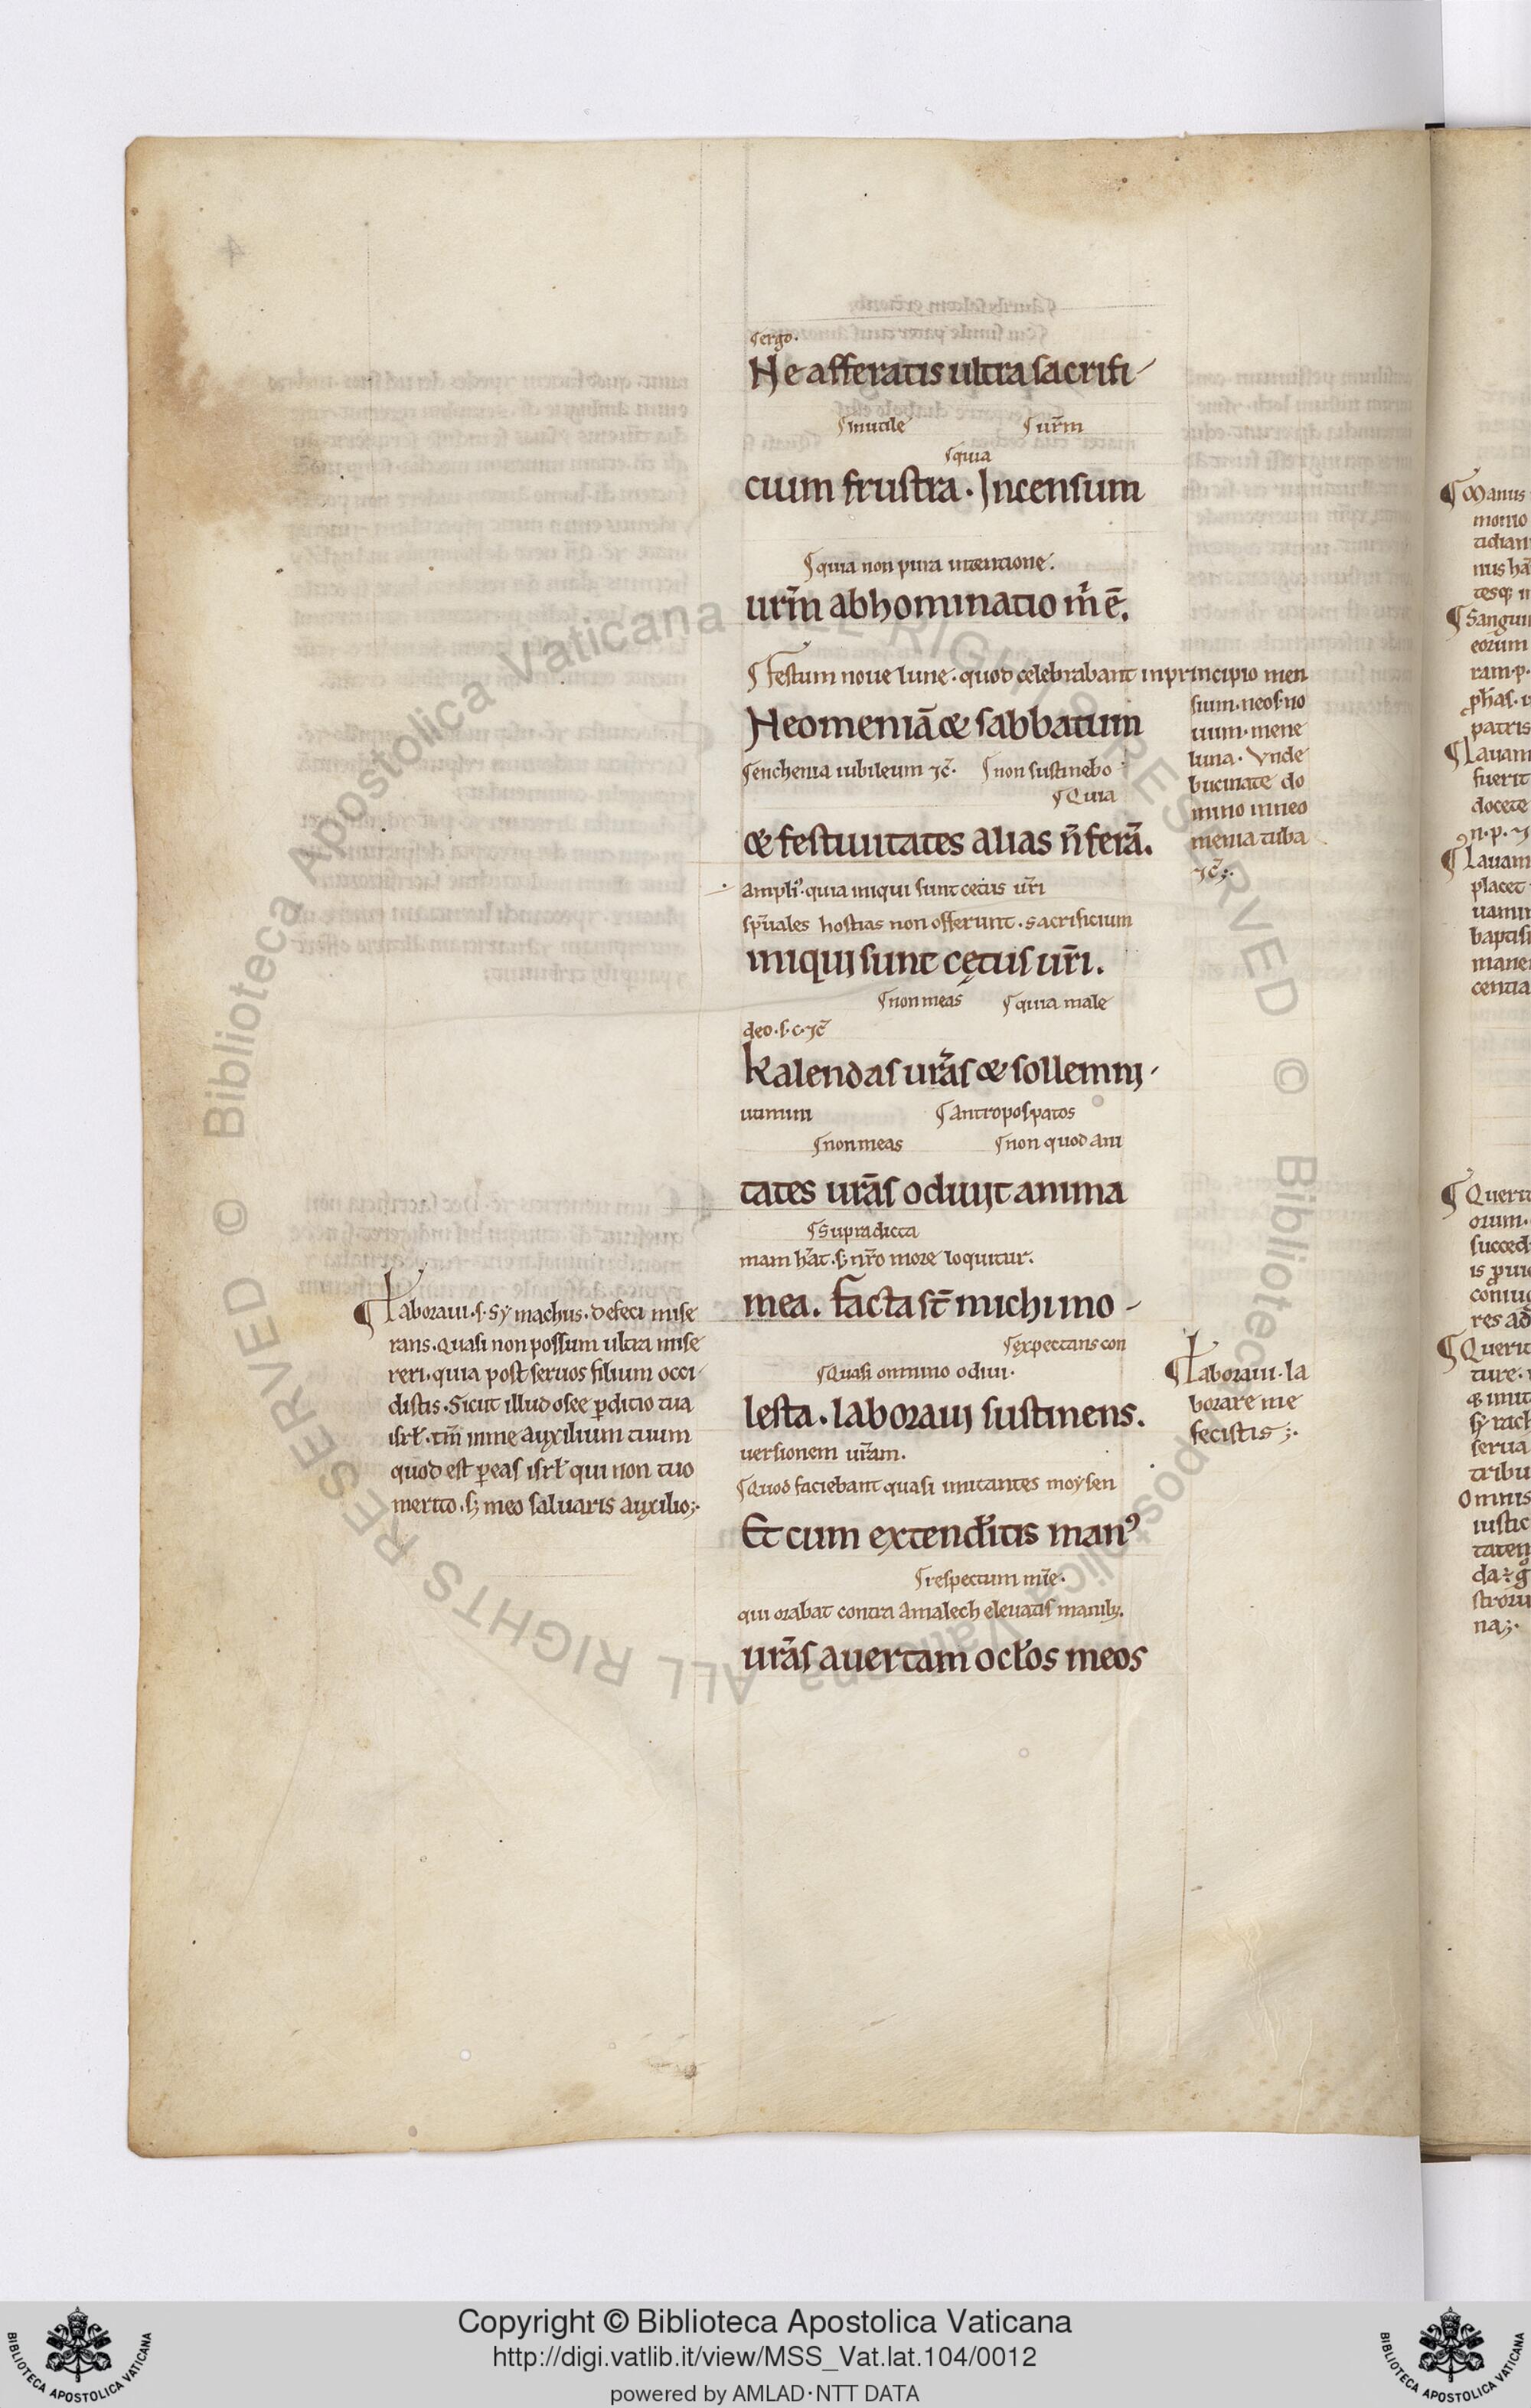 ¶ergo·
Ne afferatis ultra sacrifi-
¶inutile ¶urm̄
¶quia
cium frustra· Incensum
¶quia non pura intentione·
urm̄ abhominatio m̄ ē.
¶Festum noue lune· quod celebrabant inprincipio men
sium· neos· no
uum· mene
luna· Vnde
bucinate do
mino inneo
menia tuba
⁊c̄;·
Neomeniā & sabbatum
¶enchenia iubileum ⁊c̄· ¶non sustinebo
¶Quia
& festiuitates alias ñ ferā.
ampliꝰ· quia iniqui sunt cetus ur̄i
sp̄uales hostias non offerunt· sacrificium
iniqui sunt cętus ur̄i.
¶non meas ¶quia male
deo· s· c· ⁊c̄
kalendas urās & sollemni-
uiuunt
¶antropospatos
¶non meas ¶non quod ani
tates urās odiuit anima
¶Supradicta
mam hat̄· s; nr̄o more loquitur.
mea. facta st̄ michi mo-
¶expectans con
¶Quasi omnino odiui·
lesta· laboraui sustinens.
uersionem ur̄am.
¶Quod faciebant quasi imitantes moysen
Et cum extendītis manꝰ
¶respectum mīe·
qui orabat contra amalech eleuatis manibꝫ.
urās auertam ocl̄os meos
¶Laboraui· s· Symachus· defeci mise
rans· quasi non possum ultra mise
reri· quia post seruos filium occi-
distis· Sicut illud osee ꝑditio tua
isrl̄· tm̄ inme auxilium tuum
quod est ꝑeas isrl̄ qui non tuo
merito· s; meo saluaris auxilio;·
¶Laboraui· la
borare me
fecistis;·
¶Manus
¶Lauam
fuerit
docete
¶Lauam
placet
baptis
centia
succed
res ad
ture·
tribu
Omnis
iustic
na;·
Copyright © Biblioteca Apostolica Vaticana
http://digi.vatlib.it/view/MSS_Vat.lat.104/0012
powered by AMLAD·NTT DATA
BIBLIOTECA APOSTOLICA VATICANA
BIBLIOTECA APOSTOLICA VATICANA
© Biblioteca Apostolica Vaticana ALL RIGHTS RESERVED © Biblioteca Apostolica Vaticana ALL RIGHTS RESERVED